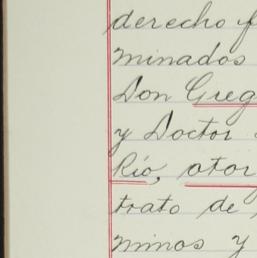 derecho f
minados
Don Greg
y Doctor
Río, otor
trato de
minos y